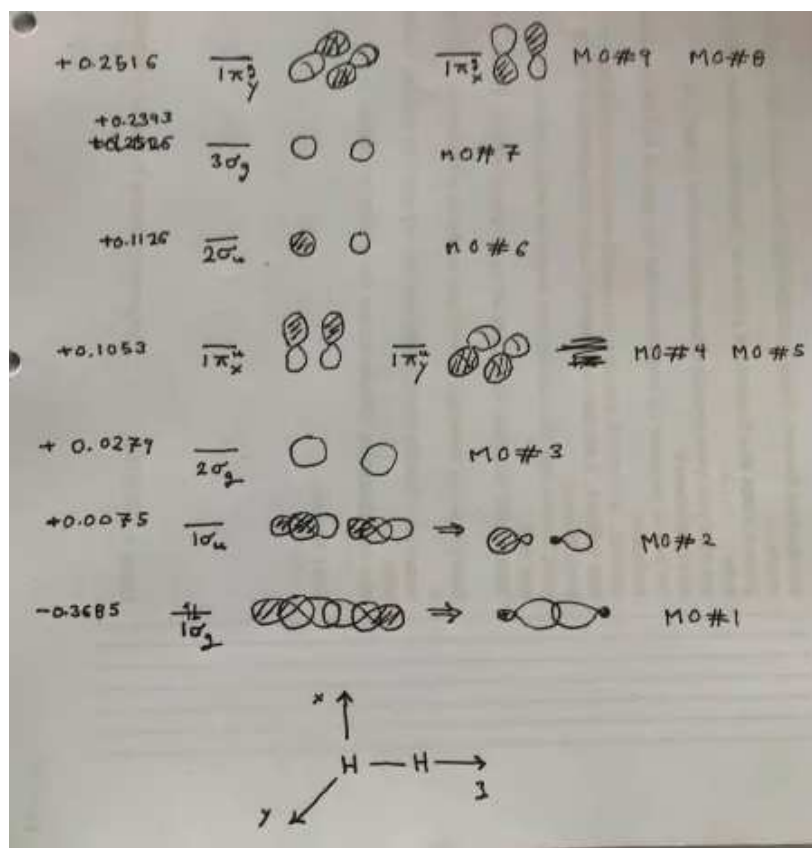 +0.2516 1πᵍy 1πᵍx MO#9 MO#8
+0.2393
3σg MO#7
+0.1126 2σu MO#6
+0.1053 1πᵘx 1πᵘy MO#4 MO#5
+ 0.0279 2σg MO#3
+0.0075 1σu ⇒ MO#2
-0.3685 1σg ⇒ MO#1
x
H — H
z
y